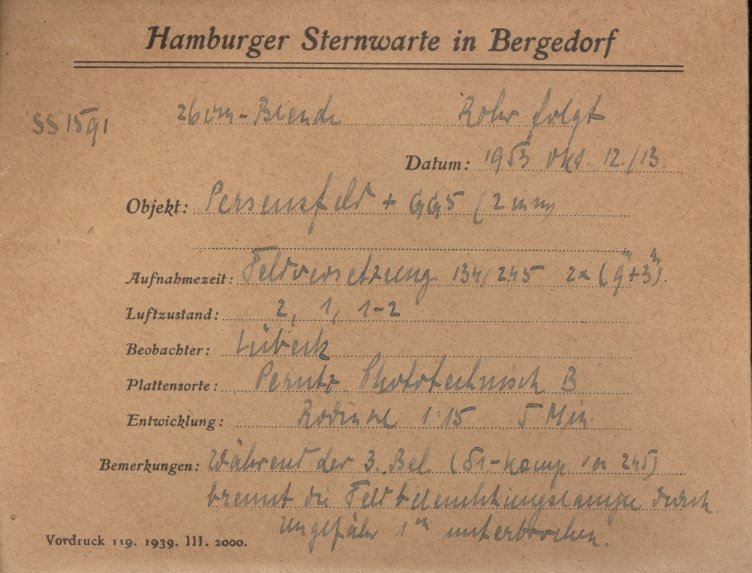 Hamburger Sternwarte in Bergedorf
SS 1591 26 cm-Blende Rohr folgt
Datum: 1953 Okt. 12./13.
Objekt: Perseusfeld + GG5 (2mm)
Aufnahmezeit: Feldversetzung 134/245 2x(9m+3m)
Luftzustand: 2, 1, 1-2
Beobachter: Lübeck
Plattensorte: Perutz Phototechnisch B
Entwicklung: Rodinal 1:15 5 Min
Bemerkungen: Während der 3. Bel. 245)
brennt die Feldbeleuchtungslampe durch.
Ungefähr 1m unterbrochen.
Vordruck 119. 1939. III. 2000.